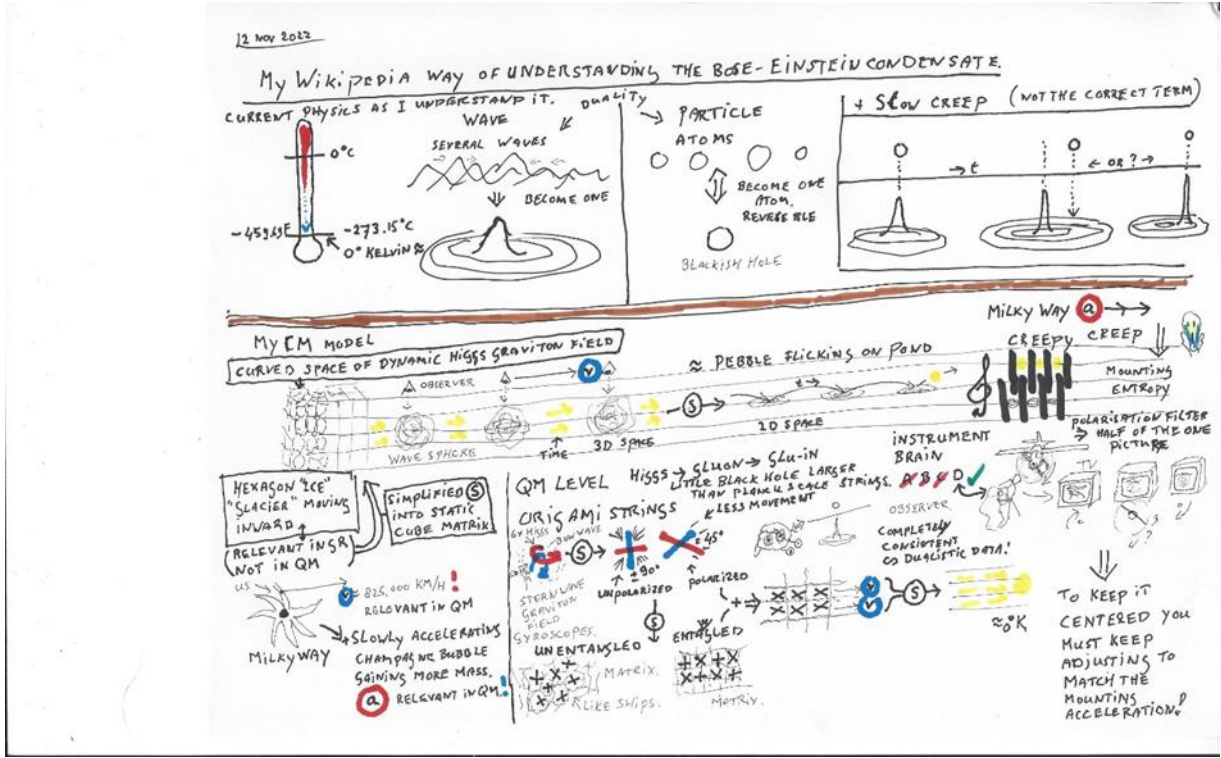 12 NOV 2022
MY WIKIPEDIA WAY OF UNDERSTANDING THE BOSE-EINSTEIN CONDENSATE.
CURRENT PHYSICS AS I UNDERSTAND IT.
DUALITY
WAVE
SEVERAL WAVES
BECOME ONE
0°C
-273.15°C
0° KELVIN ≈
PARTICLE
ATOMS
BECOME ONE
ATOM.
BLACKISH HOLE
+ SLOW CREEP (NOT THE CORRECT TERM)
→ t
← OR ? →
MY CM MODEL
CURVED SPACE OF DYNAMIC HIGGS GRAVITON FIELD
OBSERVER
V
≈ PEBBLE FLICKING ON POND
MILKY WAY a →→
CREEPY CREEP
MOUNTING
ENTROPY
WAVE SPHERE
TIME
3D SPACE
S
t →
2D SPACE
POLARISATION FILTER
HALF OF THE ONE
PICTURE
HEXAGON "ICE"
"GLACIER" MOVING
INWARD
(RELEVANT IN GR
NOT IN QM)
SIMPLIFIED S
INTO STATIC
CUBE MATRIX
US
V ≈ 825,000 KM/H !
RELEVANT IN QM
MILKY WAY
+ SLOWLY ACCELERATING
CHAMPAGNE BUBBLE
GAINING MORE MASS.
a RELEVANT IN QM!
QM LEVEL
HIGGS → GLUON → GLU-IN
LITTLE BLACK HOLE LARGER
THAN PLANCK SCALE STRINGS.
LESS MOVEMENT
INSTRUMENT
BRAIN
A B C D ✓
OBSERVER
ORIGAMI STRINGS
6X HIGGS
S
±90°
UNPOLARIZED
45°
POLARIZED
GRAVITON
FIELD
GYROSCOPES.
S
UNENTANGLED
MATRIX.
LIKE SHIPS.
ENTAGLED
MATRIX.
COMPLETELY
CONSISTENT
DUALISTIC DATA!
V
V
S
≈0°K
TO KEEP IT
CENTERED YOU
MUST KEEP
ADJUSTING TO
MATCH THE
MOUNTING
ACCELERATION!